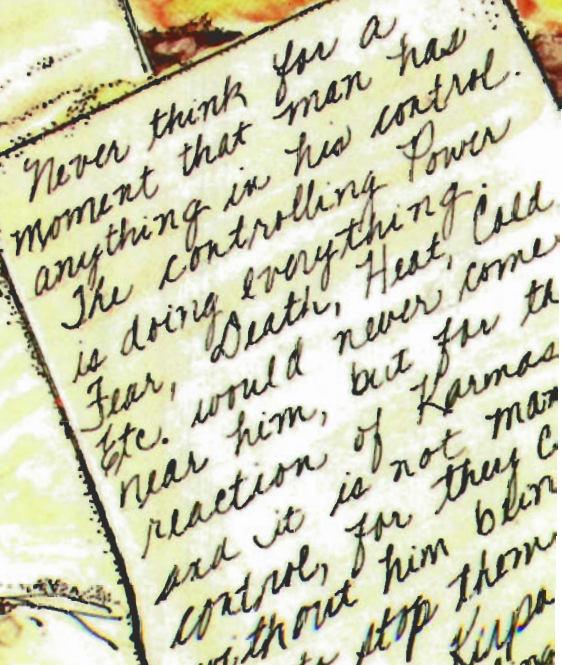 Never think for a
moment that man has
anything in his control.
The controlling Power
is doing everything.
Fear, Death, Heat, Cold
Etc. would never come
near him, but for th
reaction of Karmas
and it is not man
control, for they c
without him bein
to stop them
Kirpa